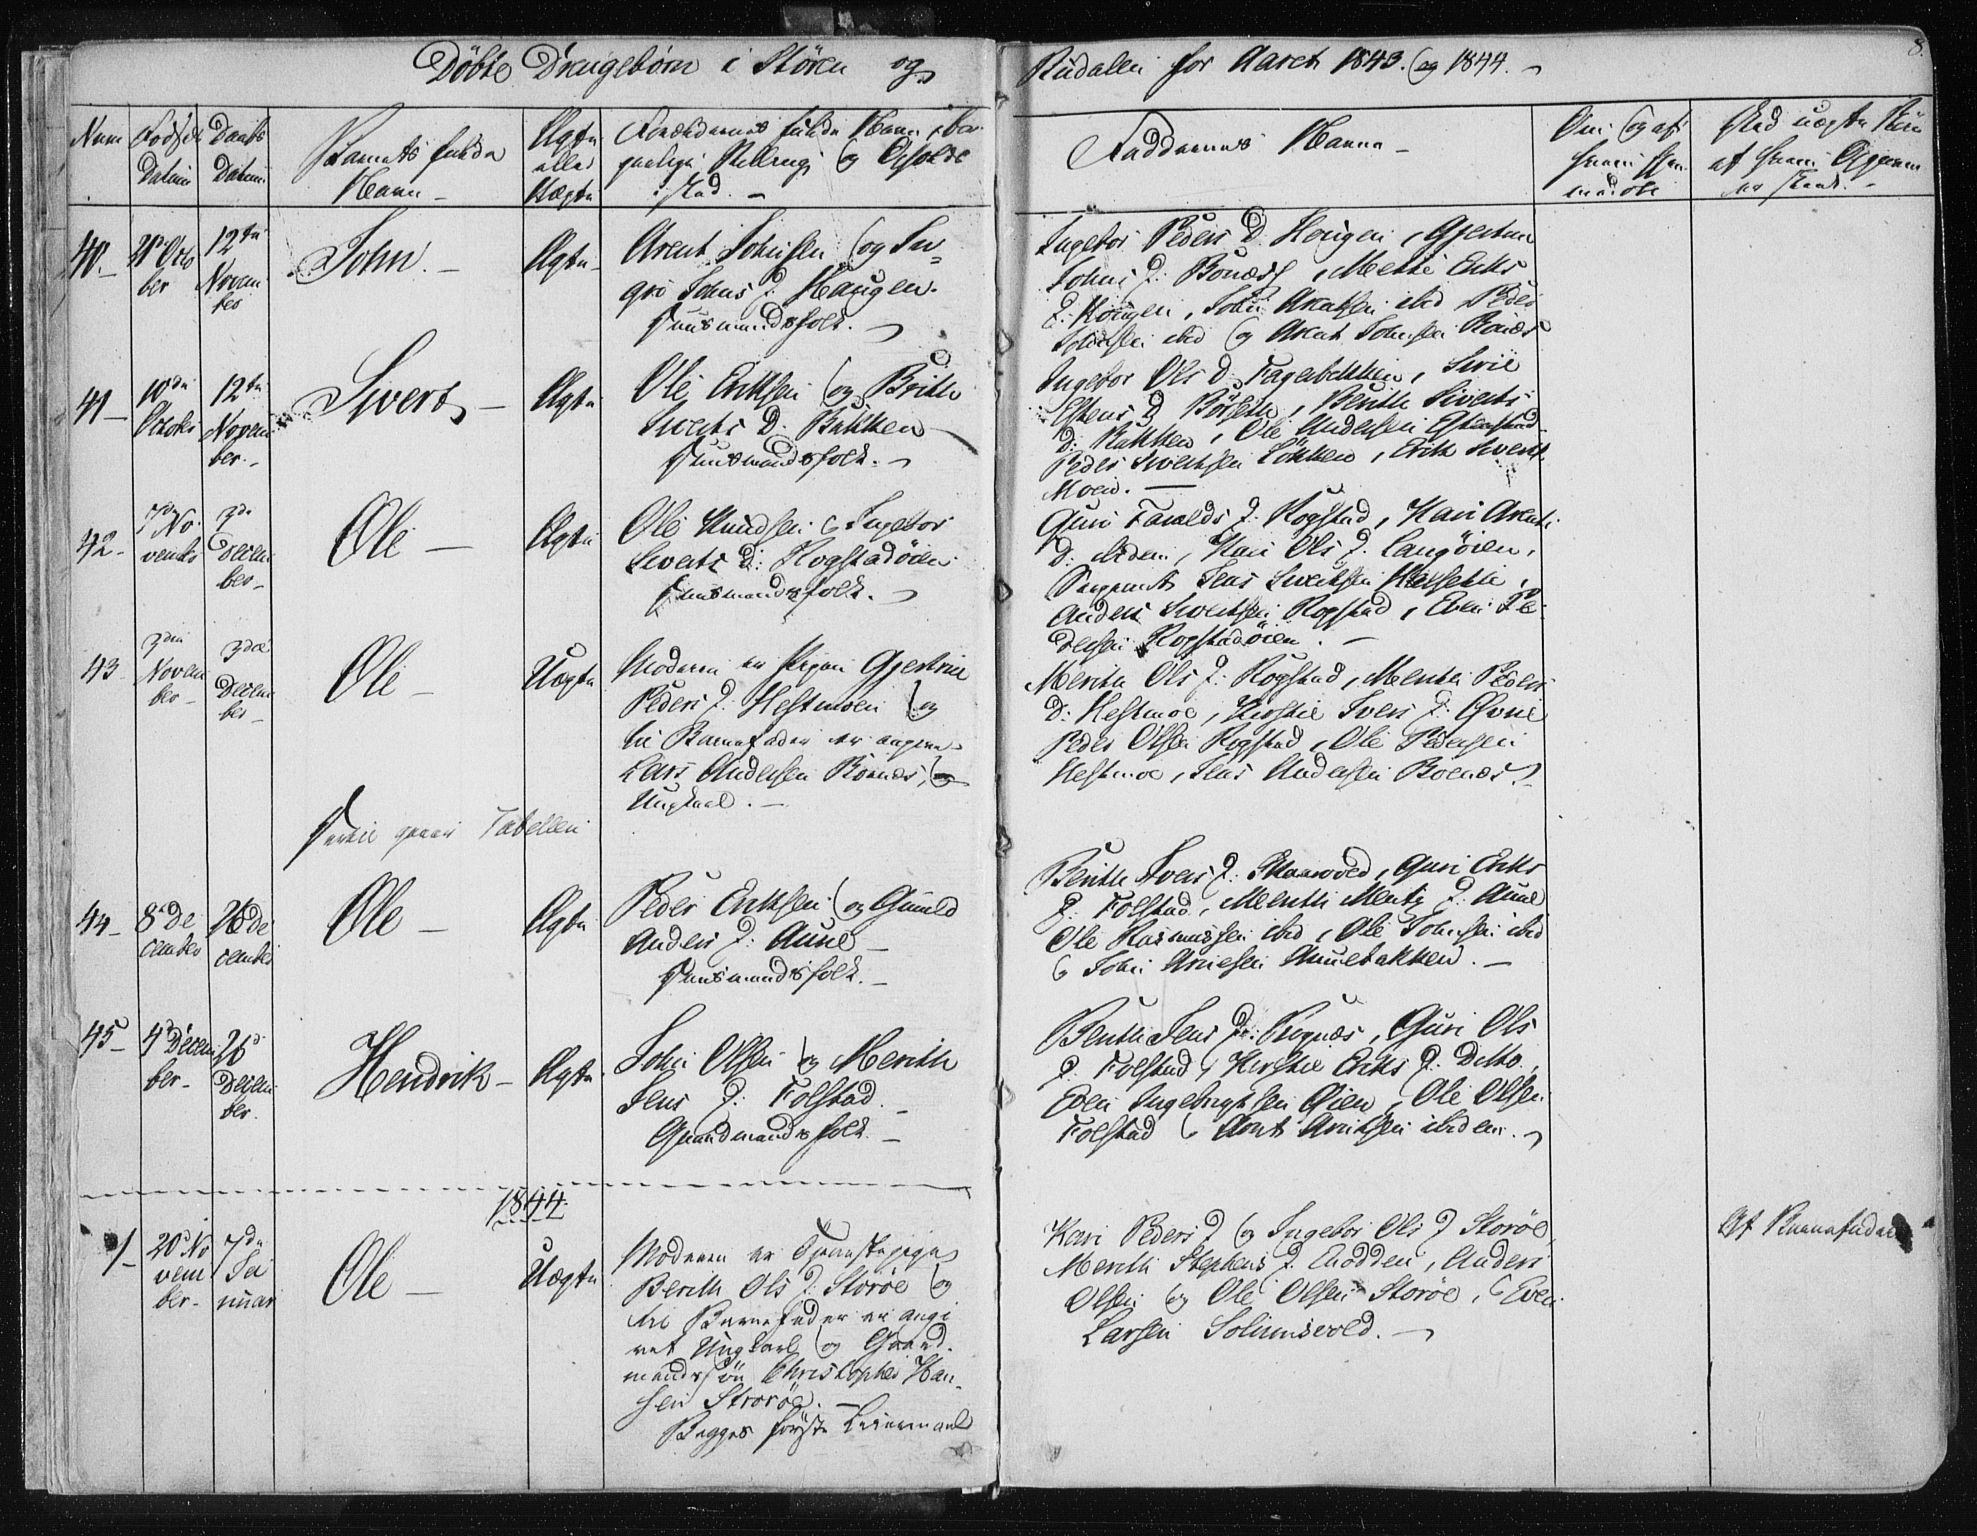 Döbte Drengebørn i Stören og Budalen for Aaret 1843. og 1844.
8.
Num
Fødsels Datum
Daabs Datum
Barnets fulde Navn
Ægte eller Uægte
Forældrenes fulde Navn, bor
og Opholds
Sted.
Faddernes Navne
40.
28 Octo
ber
12te
Novem
ber
John.
Ægte
Arent Johnsen og In
gri Johns D. Haugen.
Huusmandsfolk.
Ingebor Peders D. Haugen, Gjertrue
Johns D. Bonæss, Merthe Eriks
D. Haugen, John Arentsen ibid Peder
Johnsen ibid og Arent Johnsen Bonæs
41
10de
October
12te
Novem
ber.
Sivert
Ægte
Ole Eriksen og Brith
Siverts D. Bakken
Huusmandsfolk.
Ingebor Ols D. Fagerbekken, Siri
Estens D. Börseth, Berith Siverts
D. Bakken, Ole Andersen
Peder Sivertsen Løkken, Erik Sivert
Moen.
42
7de No
vember
3de
Decem
ber
Ole
Ægte
Ole Knudsen & Ingebor
Siverts D: Rogstadöien
Huusmandsfolk.
Guri Haralds D. Rogstad, Kari Arents
D. ibidem, Kari Ols D. Langöien,
Sergeant Jens Sivertsen
Anders Sivertsen Rogstad, Even Pe
dersen Rogstadöien.
43
Novem
ber
3die
Decem
ber
Ole
Uægte
Moderen er Pigen Gjertrue
Peders D. Hestmoen og
til Barnefader er angiven
Lars Andersen Bonæs,
Ungkarl.
Merith Ols D. Rogstad, Merthe Peders
D: Hestmoe, Kirstie Ivers D. Øvrie
Peder Olsen Rogstad, Ole Pedersen
Hestmoe, Jens Andersen Bonæs.
Tabellen
44
8de De
cember
26 De
cember
Ole
Ægte
Peder Eriksen og Gunild
Anders D. Aune
Huusmandsfolk.
Berith Ivers D. Skaarvold, Guri Eriks
D. Folstad, Merith Mentz D. Aune
Ole Rasmussen ibid, Ole Johnsen ibid
& John Arnesen Aunebakken.
45
4 Decem
ber
26
Decem
ber.
Hendrik
Ægte
John Olsen og Merith
Jens D. Folstad.
Gaardmandsfolk.
Berith Jens D. Rognæs, Guri Ols
D. Folstad, Kirstie Eriks D. Ditto,
Even Ingebrigtsen Öien, Ole Olsen
Folstad & Arnt Arntsen ibidem.
1844.
1
20 No
vem
ber
7de
Ja
nuar
Ole
Uægte
Moderen er Tjenestepige
Berith Ols D. Storöe og
til Barnefader er angi
vet Ungkarl og Gaard
mandssön Christopher Han
sen Storöe.
Begges første Leiermaal
Kari Peders D og Ingebor Ols D Storöe
Merith Stephens D. Enodden, Anders
Olsen og Ole Olsen Storöe, & Even
Larsen Solemsvold.
Af Barnefader